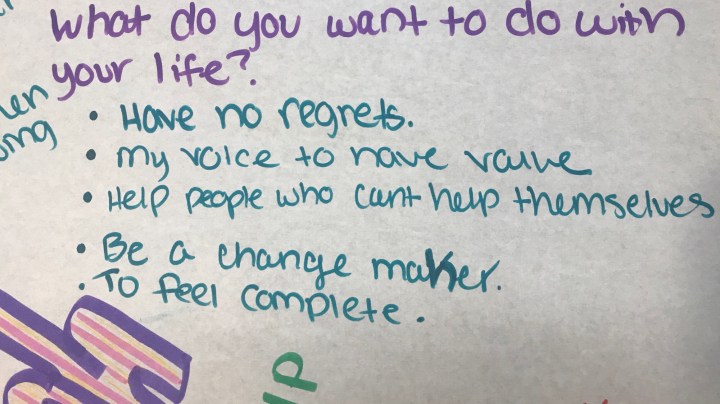 What do you want to do with
your life?
• Have no regrets.
• my voice to have value
• Help people who cant help themselves
• Be a change maker.
• To feel complete.